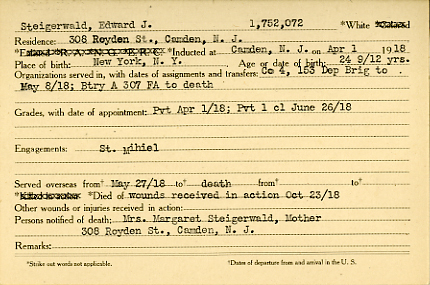 Steigerwald, Edward J. 1,752,072 *White *Colored
Residence: 308 Royden St., Camden, N. J.
*Inducted at Camden, N. J. on Apr 1 1918
Place of birth: New York, N. Y. Age or date of birth: 24 9/12 yrs.
Organizations served in, with dates of assignments and transfers: Co 4, 153 Dep Brig to
May 8/18; Btry A 307 FA to death
Grades, with date of appointment: Pvt Apr 1/18; Pvt 1 cl June 26/18
Engagements: St. Mihiel
Served overseas from† May 27/18 to† death from† to†
*Died of wounds received in action Oct 23/18
Other wounds or injuries received in action:
Persons notified of death: Mrs. Margaret Steigerwald, Mother
308 Royden St., Camden, N. J.
Remarks:
*Strike out words not applicable. †Dates of departure from and arrival in the U. S.